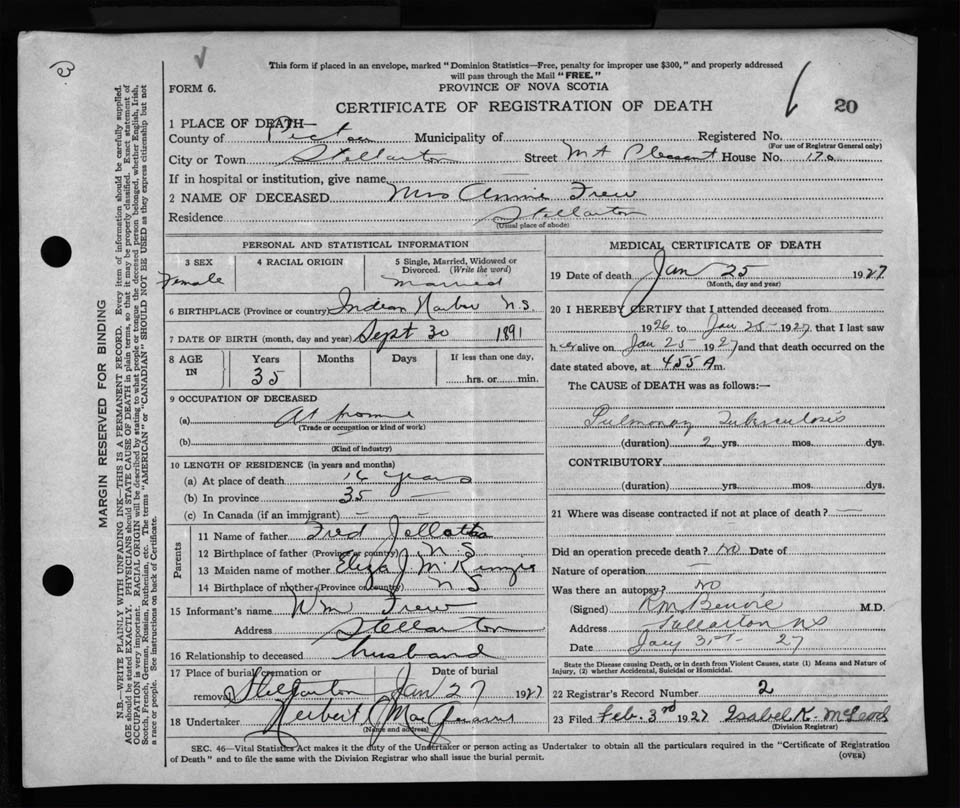 This form if placed in an envelope, marked "Dominion Statistics—Free, penalty for improper use $300," and properly addressed
will pass through the Mail "FREE."
FORM 6.
PROVINCE OF NOVA SCOTIA
CERTIFICATE OF REGISTRATION OF DEATH
20
1 PLACE OF DEATH—
County of Pictou Municipality of Registered No.
(For use of Registrar General only)
City or Town Stellarton Street Mt Pleasant House No. 170
If in hospital or institution, give name
2 NAME OF DECEASED Mrs Annie Frew
Residence Stellarton
(Usual place of abode)
PERSONAL AND STATISTICAL INFORMATION
3 SEX
Female
4 RACIAL ORIGIN
5 Single, Married, Widowed or
Divorced. (Write the word)
Married
6 BIRTHPLACE (Province or country) Indian Harbor N.S.
7 DATE OF BIRTH (month, day and year) Sept 30 1891
8 AGE
IN
Years
35
Months
Days
If less than one day,
hrs. or min.
9 OCCUPATION OF DECEASED
(a) At home
(Trade or occupation or kind of work)
(b)
(Kind of industry)
10 LENGTH OF RESIDENCE (in years and months)
(a) At place of death 16 years
(b) In province 35 —
(c) In Canada (if an immigrant) — —
Parents
11 Name of father Fred
12 Birthplace of father (Province or country) N S
13 Maiden name of mother Eliza J McKenzie
14 Birthplace of mother (Province or country) N S
15 Informant's name Wm Frew
Address Stellarton
16 Relationship to deceased husband
17 Place of burial, cremation or
removal Stellarton
Date of burial
Jan 27 1927
18 Undertaker Herbert
(Name and address)
MEDICAL CERTIFICATE OF DEATH
19 Date of death Jan 25 1927
(Month, day and year)
20 I HEREBY CERTIFY that I attended deceased from
1926 to Jan 25 - 1927, that I last saw
her alive on Jan 25 - 1927 and that death occurred on the
date stated above, at 455 A m.
The CAUSE of DEATH was as follows:—
Pulmonary Tuberculosis
(duration) 2 yrs. mos. dys.
CONTRIBUTORY
(duration) yrs. mos. dys.
21 Where was disease contracted if not at place of death? —
Did an operation precede death? No Date of
Nature of operation —
Was there an autopsy? NO
(Signed) M.D.
Address Stellarton NS
Date 27
State the Disease causing Death, or in death from Violent Causes, state (1) Means and Nature of
Injury, (2) whether Accidental, Suicidal or Homicidal.
22 Registrar's Record Number 2
23 Filed Feb. 3rd 1927 Isabel K. McLeod
(Division Registrar)
SEC. 46—Vital Statistics Act makes it the duty of the Undertaker or person acting as Undertaker to obtain all the particulars required in the "Certificate of Registration
of Death" and to file the same with the Division Registrar who shall issue the burial permit.
(OVER)
MARGIN RESERVED FOR BINDING
N.B.—WRITE PLAINLY WITH UNFADING INK—THIS IS A PERMANENT RECORD. Every item of information should be carefully supplied.
AGE should be stated EXACTLY. PHYSICIANS should STATE CAUSE OF DEATH in plain terms, so that it may be properly classified. Exact statement of
OCCUPATION is very important. RACIAL ORIGIN will be described by stating to what people or tongue the deceased person belonged, whether English, Irish,
Scotch, French, German, Russian, Ruthenian, etc. The terms "AMERICAN" or "CANADIAN" SHOULD NOT BE USED as they express citizenship but not
a race or people. See instructions on back of Certificate.